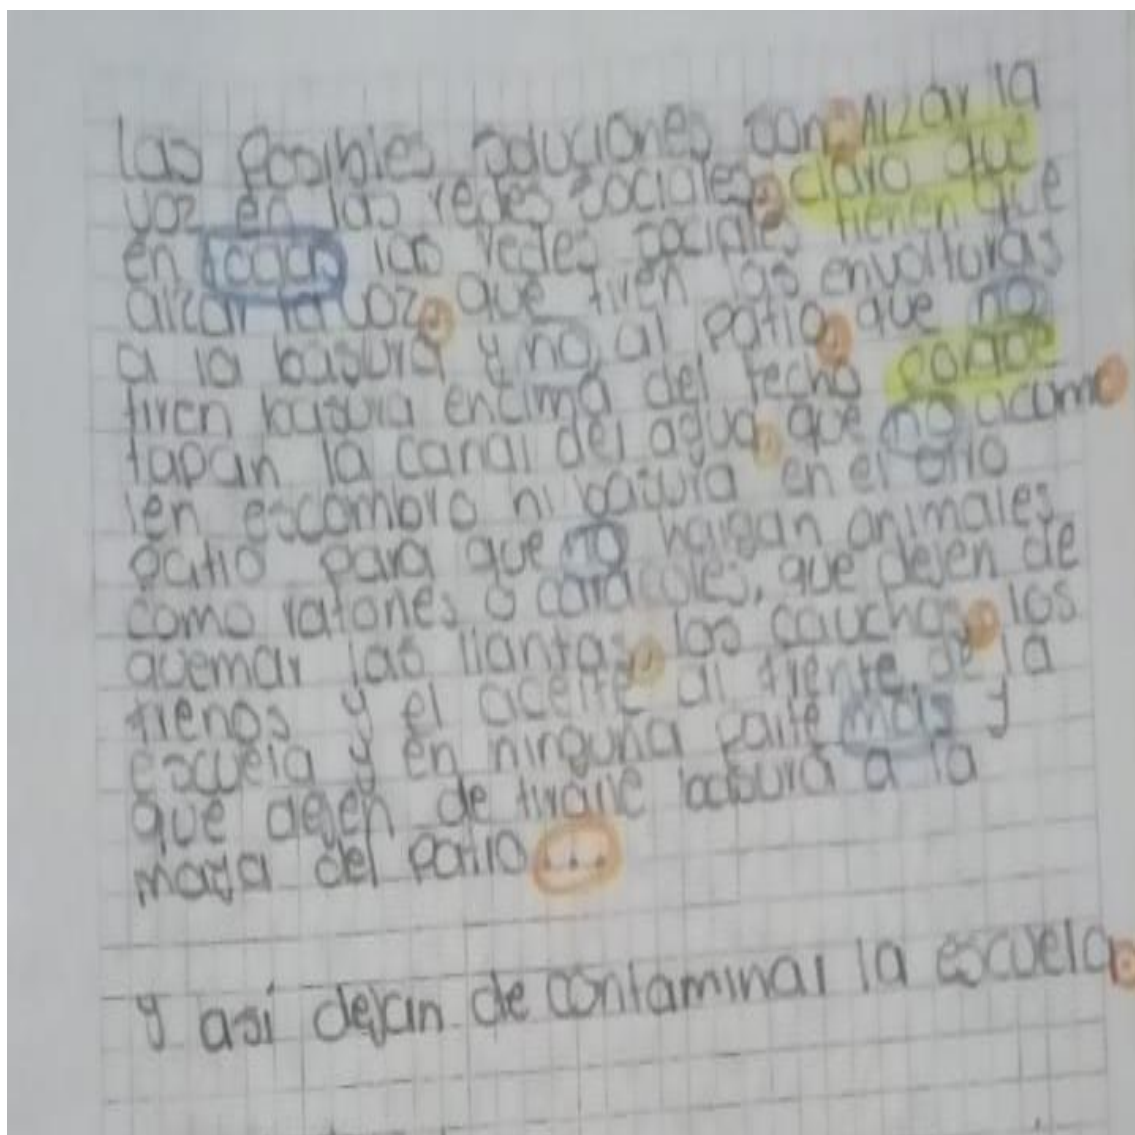 Las posibles soluciones son: Alzar la
voz en las redes sociales, claro que
en todas las redes sociales tienen que
alzar la voz, que tiren las envolturas
a la basura y no al patio, que no
tiren basura encima del techo porque
tapan la canal del agua, que no acumu
len escombro ni basura en el otro
patio para que no haigan animales
como ratones o caracoles, que dejen de
quemar las llantas, los cauchos, los
frenos y el aceite al frente de la
escuela y en ninguna parte más y
que dejen de tirarle basura a la
maya del patio...
y así dejan de contaminar la escuela.